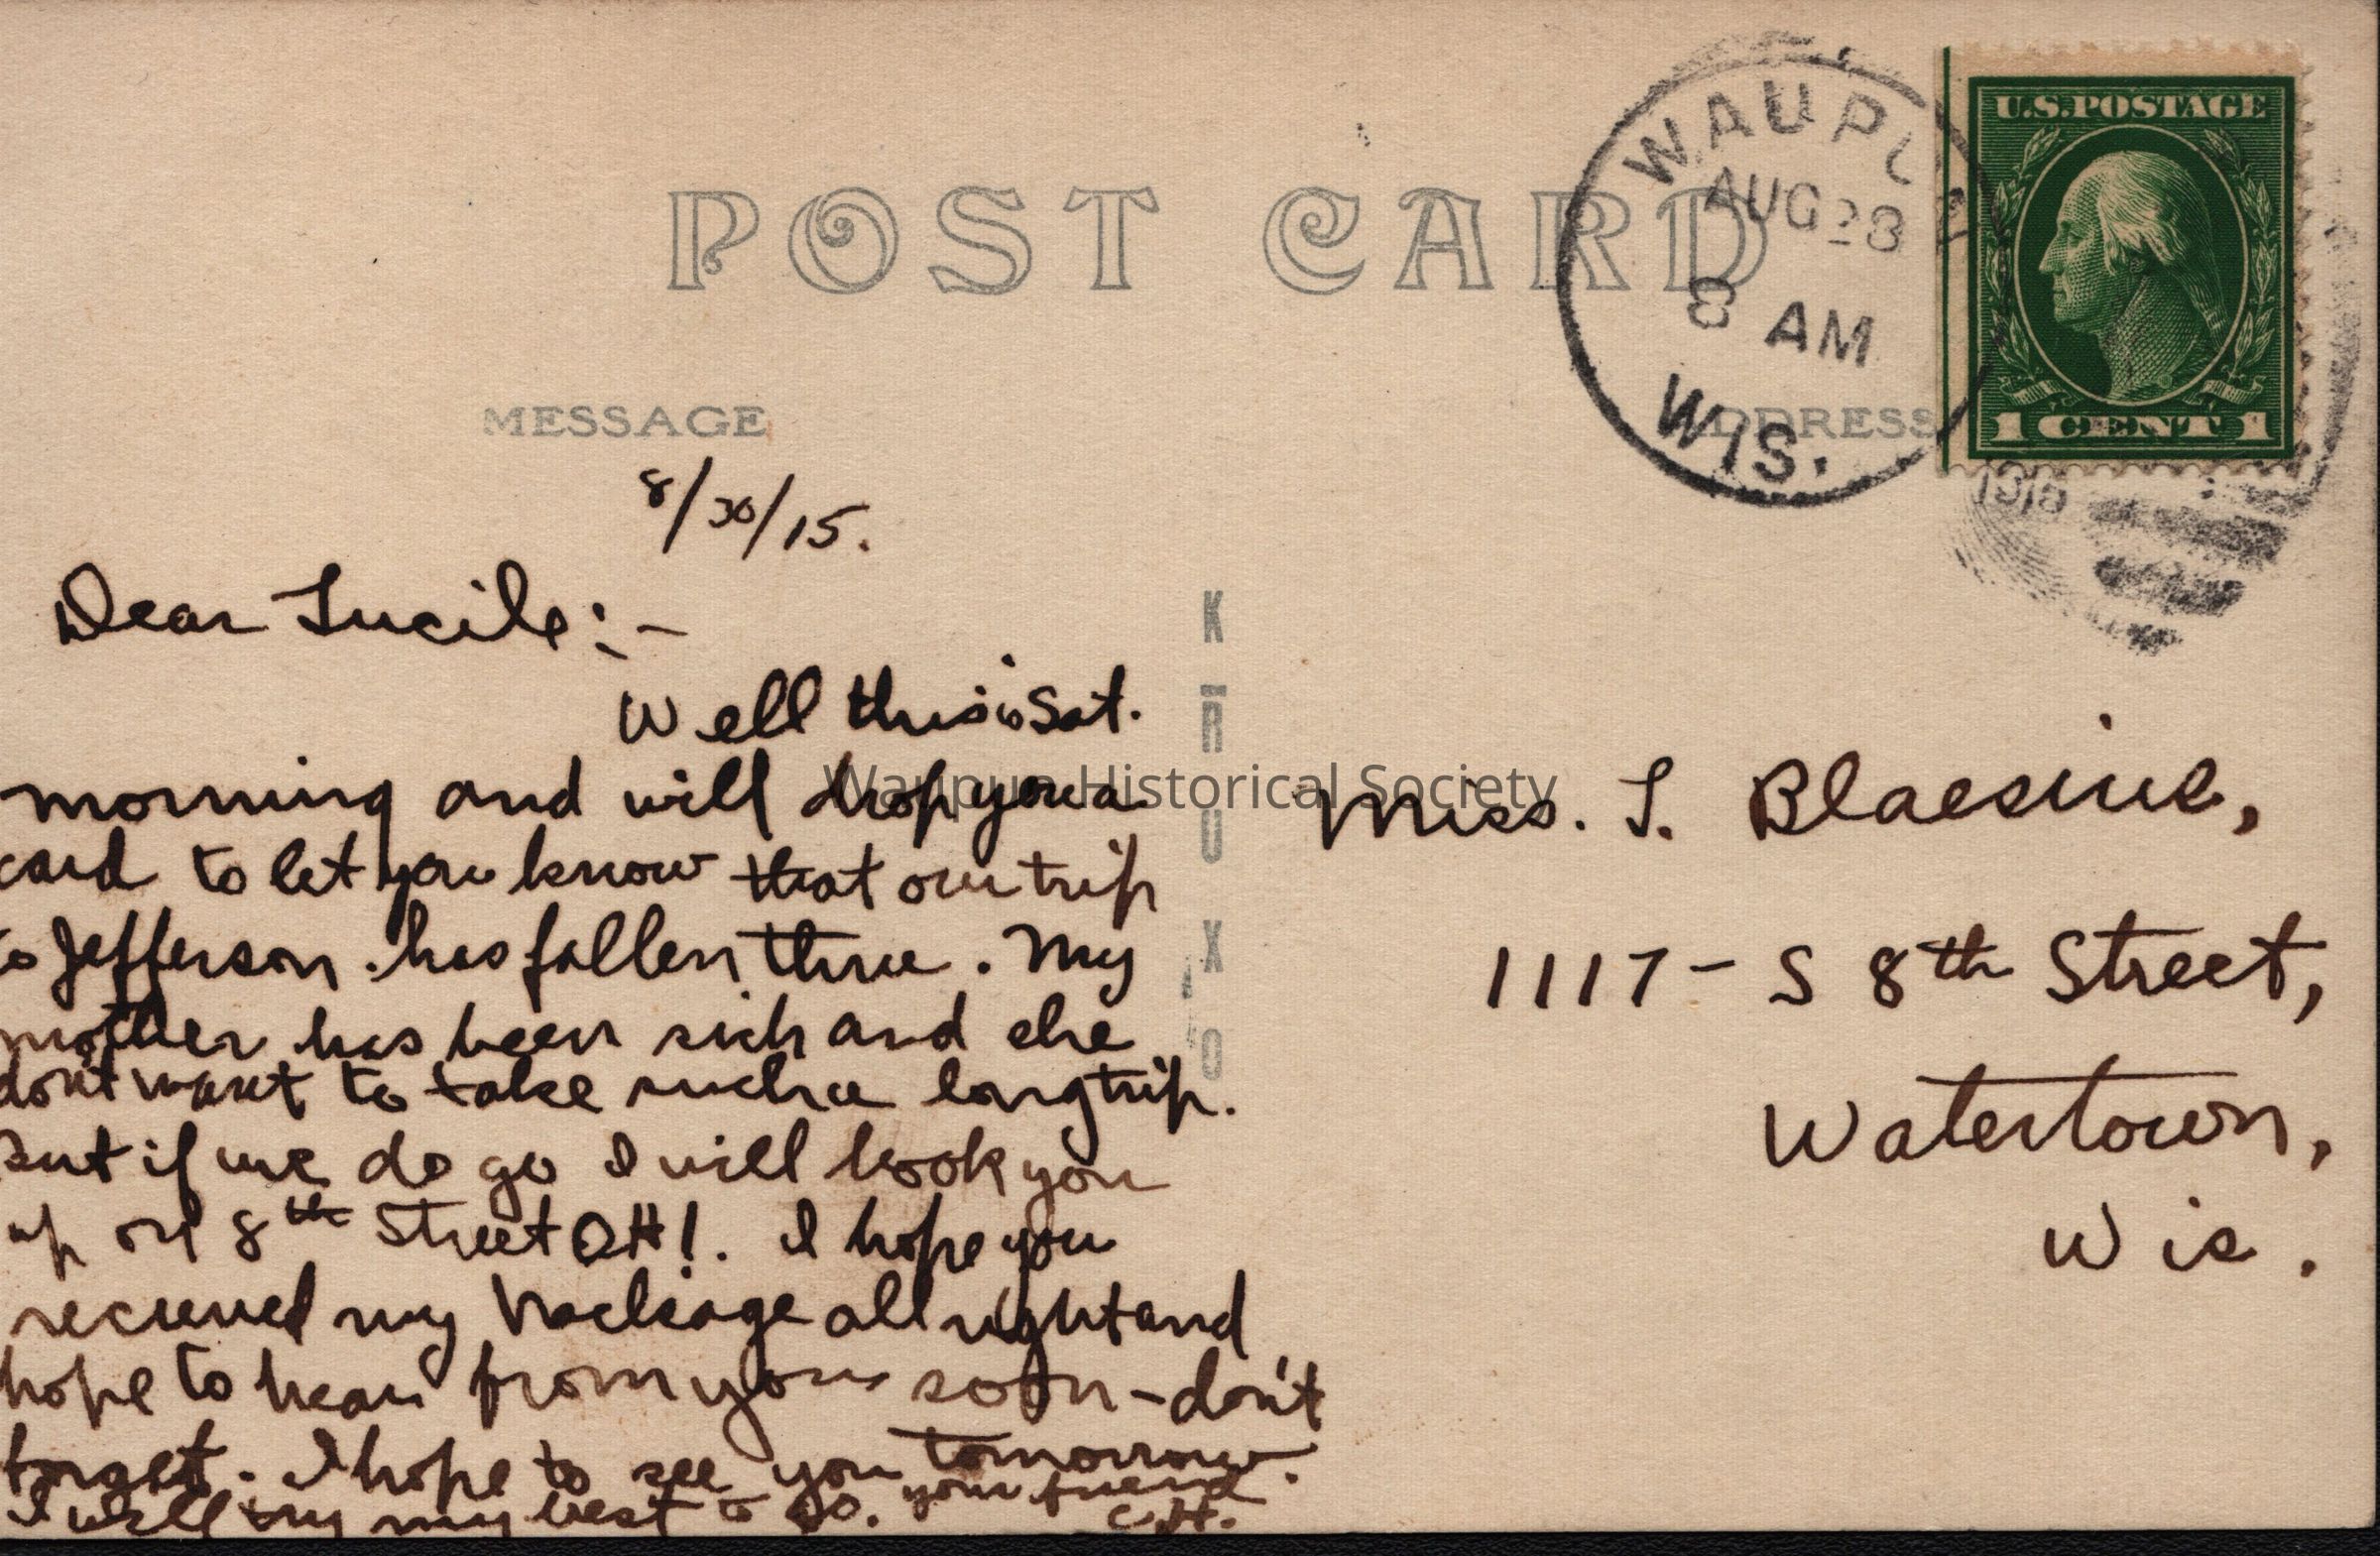 POST CARD
WAUPU
AUG 28
8 AM
WIS.
1915
U.S. POSTAGE
1 CENT 1
MESSAGE
ADDRESS
8/30/15.
Dear Lucile:-
Well this is Sat.
morning and will drop you a
card to let you know that our trip
to Jefferson has fallen thrue. My
mother has been sick and she
don't want to take such a long trip.
but if we do go I will look you
up on 8th Street OH!. I hope you
recieved my package all right and
hope to hear from you soon - don't
forget. I hope to see you tomorrow.
I will try my best to do so. your friend
C.H.
KRUXO
Miss. L. Blaesius,
1117 - S 8th Street,
Watertown,
Wis.
Waupun Historical Society